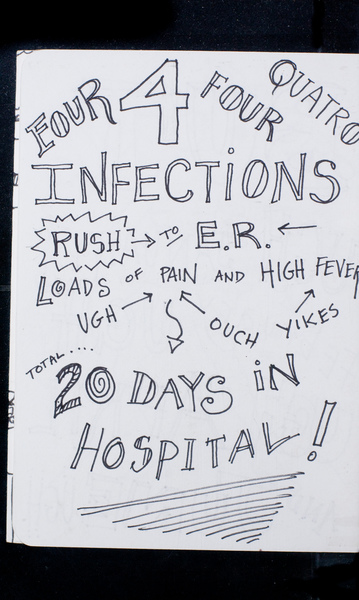 FOUR 4 FOUR QUATRO
INFECTIONS
RUSH → TO E.R. ←
LOADS OF PAIN AND HIGH FEVER
UGH OUCH YIKES
TOTAL....
20 DAYS IN
HOSPITAL!